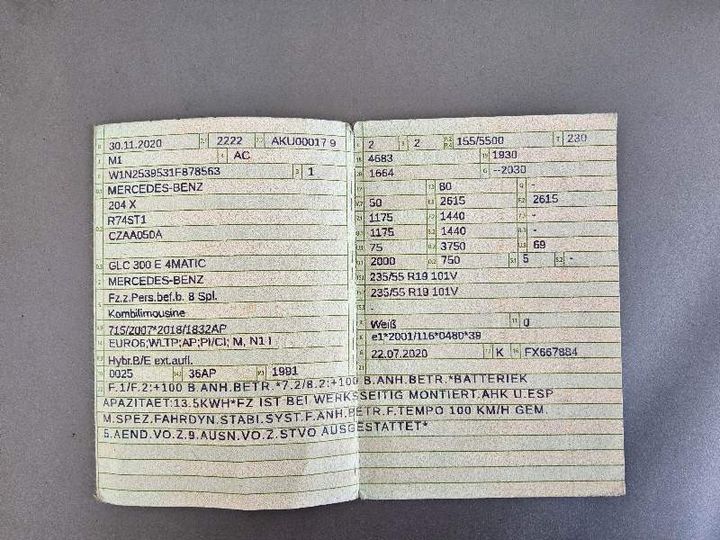 30.11.2020 2222 AKU00017 9
M1 AC
W1N2539531F878563 1
MERCEDES-BENZ
204 X
R74ST1
CZAA050A
GLC 300 E 4MATIC
MERCEDES-BENZ
Fz.z.Pers.bef.b. 8 Spl.
Kombilimousine
715/2007*2018/1832AP
EURO6;WLTP;AP;PI/CI; M, N1 I
Hybr.B/E ext.aufl.
0025 36AP 1991
2 2 155/5500 230
4683 1930
1664 --2030
80 - -
50 2615 2615
1175 1440 -
1175 1440 -
75 3750 69
2000 750 5 -
235/55 R19 101V
235/55 R19 101V
-
Weiß 0
e1*2001/116*0480*39
22.07.2020 K FX667884
F.1/F.2:+100 B.ANH.BETR.*7.2/8.2:+100 B.ANH.BETR.*BATTERIEK
APAZITAET:13.5KWH*FZ IST BEI WERKSSEITIG MONTIERT.AHK U.ESP
M.SPEZ.FAHRDYN.STABI.SYST.F.ANH.BETR.F.TEMPO 100 KM/H GEM.
5.AEND.VO.Z.9.AUSN.VO.Z.STVO AUSGESTATTET*